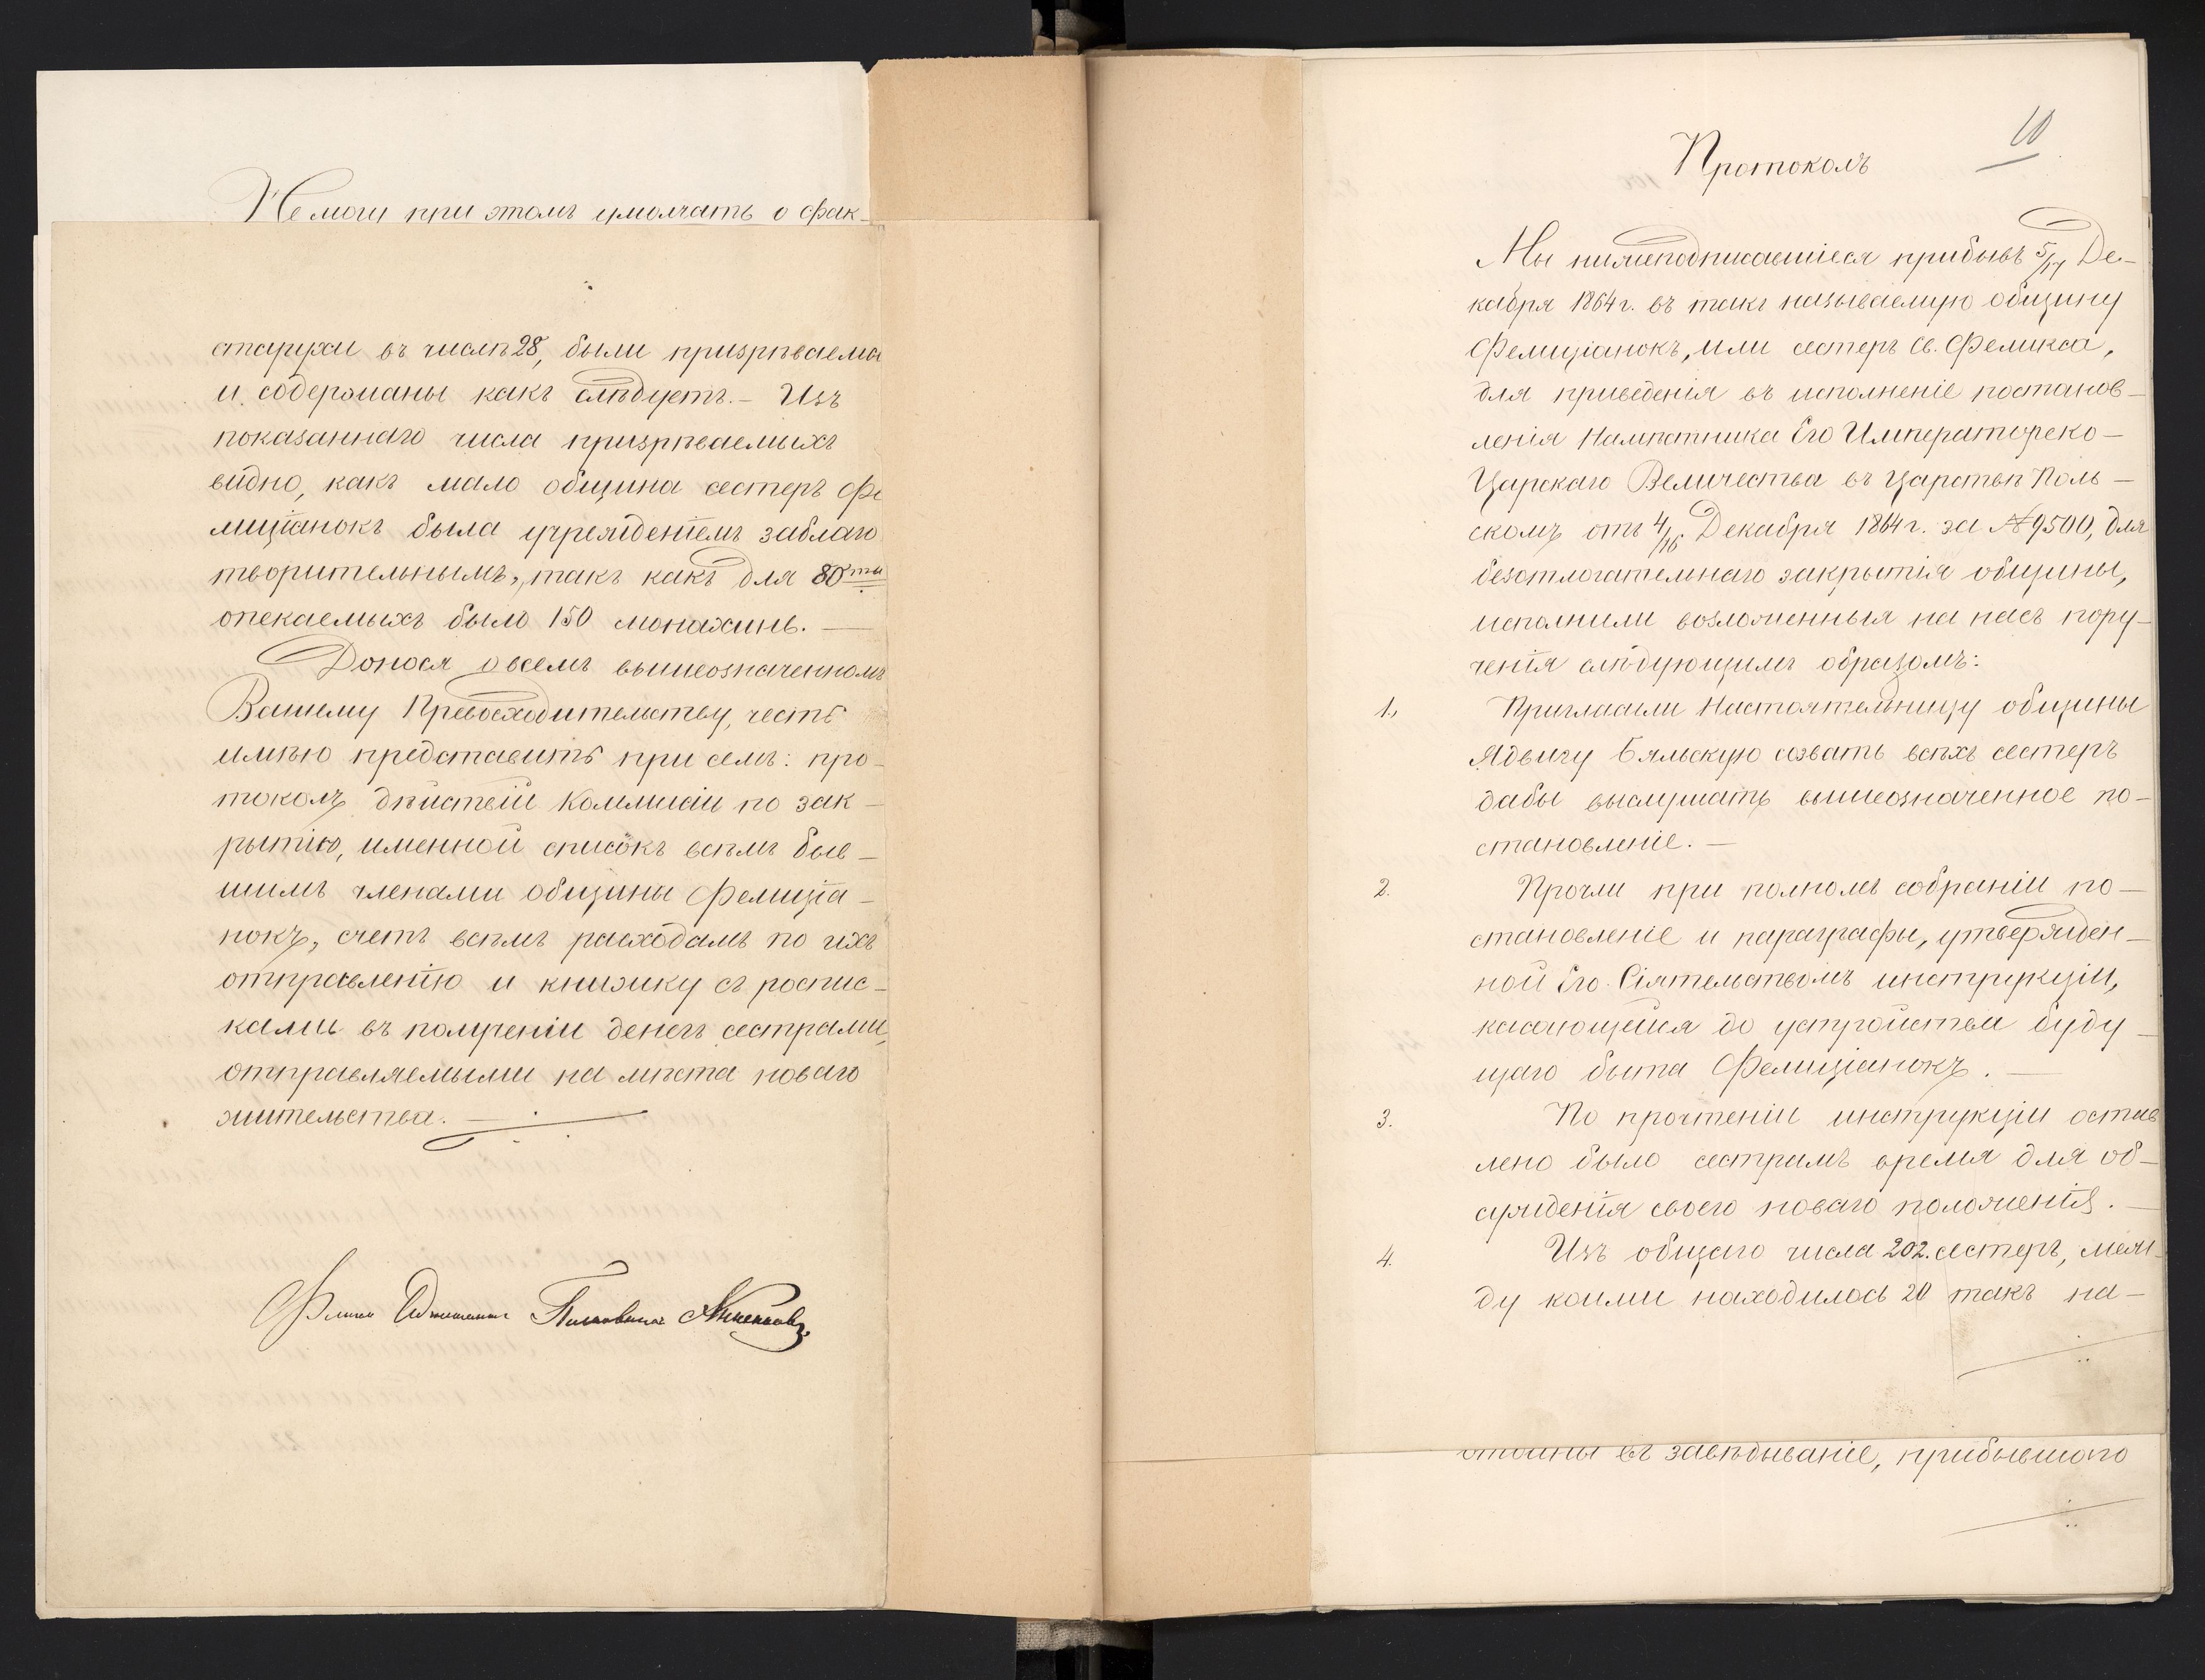 Не могу при этомъ умолчать о фак-
старухи въ числѣ 28, были призрѣваемы
и содержаны какъ слѣдуетъ. – Изъ
показаннаго числа призрѣваемыхъ
видно, какъ мало община сестеръ Фе
лиціанокъ была учрежденіемъ заблаго
творительнымъ, такъ какъ для 80ти
опекаемыхъ было 150 монахинь. —
Донося о всемъ вышеозначенномъ
Вашему Превосходительству, честь
имѣю представить при семъ: про-
токолъ дѣйствій Коммисіи по зак-
рытію, именной списокъ всѣмъ быв-
шимъ членами общины Фелиціа-
нокъ, счетъ всѣмъ расходамъ по ихъ
отправленію и книжку съ роспис-
ками въ полученіи денегъ сестрами,
отправляемыми на мѣста новаго
жительства. —
Флигель Адъютантъ Полковникъ Анненковъ
10
Протоколъ
Мы нижеподписавшіеся прибывъ 5/17 Де-
кабря 1864 г. въ такъ называемую общину
Фелиціанокъ, или сестеръ Св. Феликса,
для приведенія въ исполненіе постанов-
ленія Намѣстника Его Императорско-
Царскаго Величества въ Царствѣ Поль-
скомъ отъ 4/16 Декабря 1864 г. за № 9500, для
безотлогательнаго закрытія общины,
исполнили возложенныя на насъ пору-
ченія слѣдующимъ образомъ:
1, Пригласили Настоятельницу общины
Ядвигу Бяльскую созвать всѣхъ сестеръ
дабы выслушать вышеозначенное по-
становленіе. —
2. Прочли при полномъ собраніи по-
становленіе и параграфы, утвержден-
ной Его Сіятельствомъ инструкціи,
касающейся до устройства буду-
щаго быта Фелиціанокъ. —
3. По прочтеніи инструкціи остав
лено было сестрамъ время для об-
сужденія своего новаго положенія. —
4. Изъ общаго числа 202. сестеръ, меж-
ду коими находилось 20 такъ на-
отданы въ завѣдываніе, прибывшаго